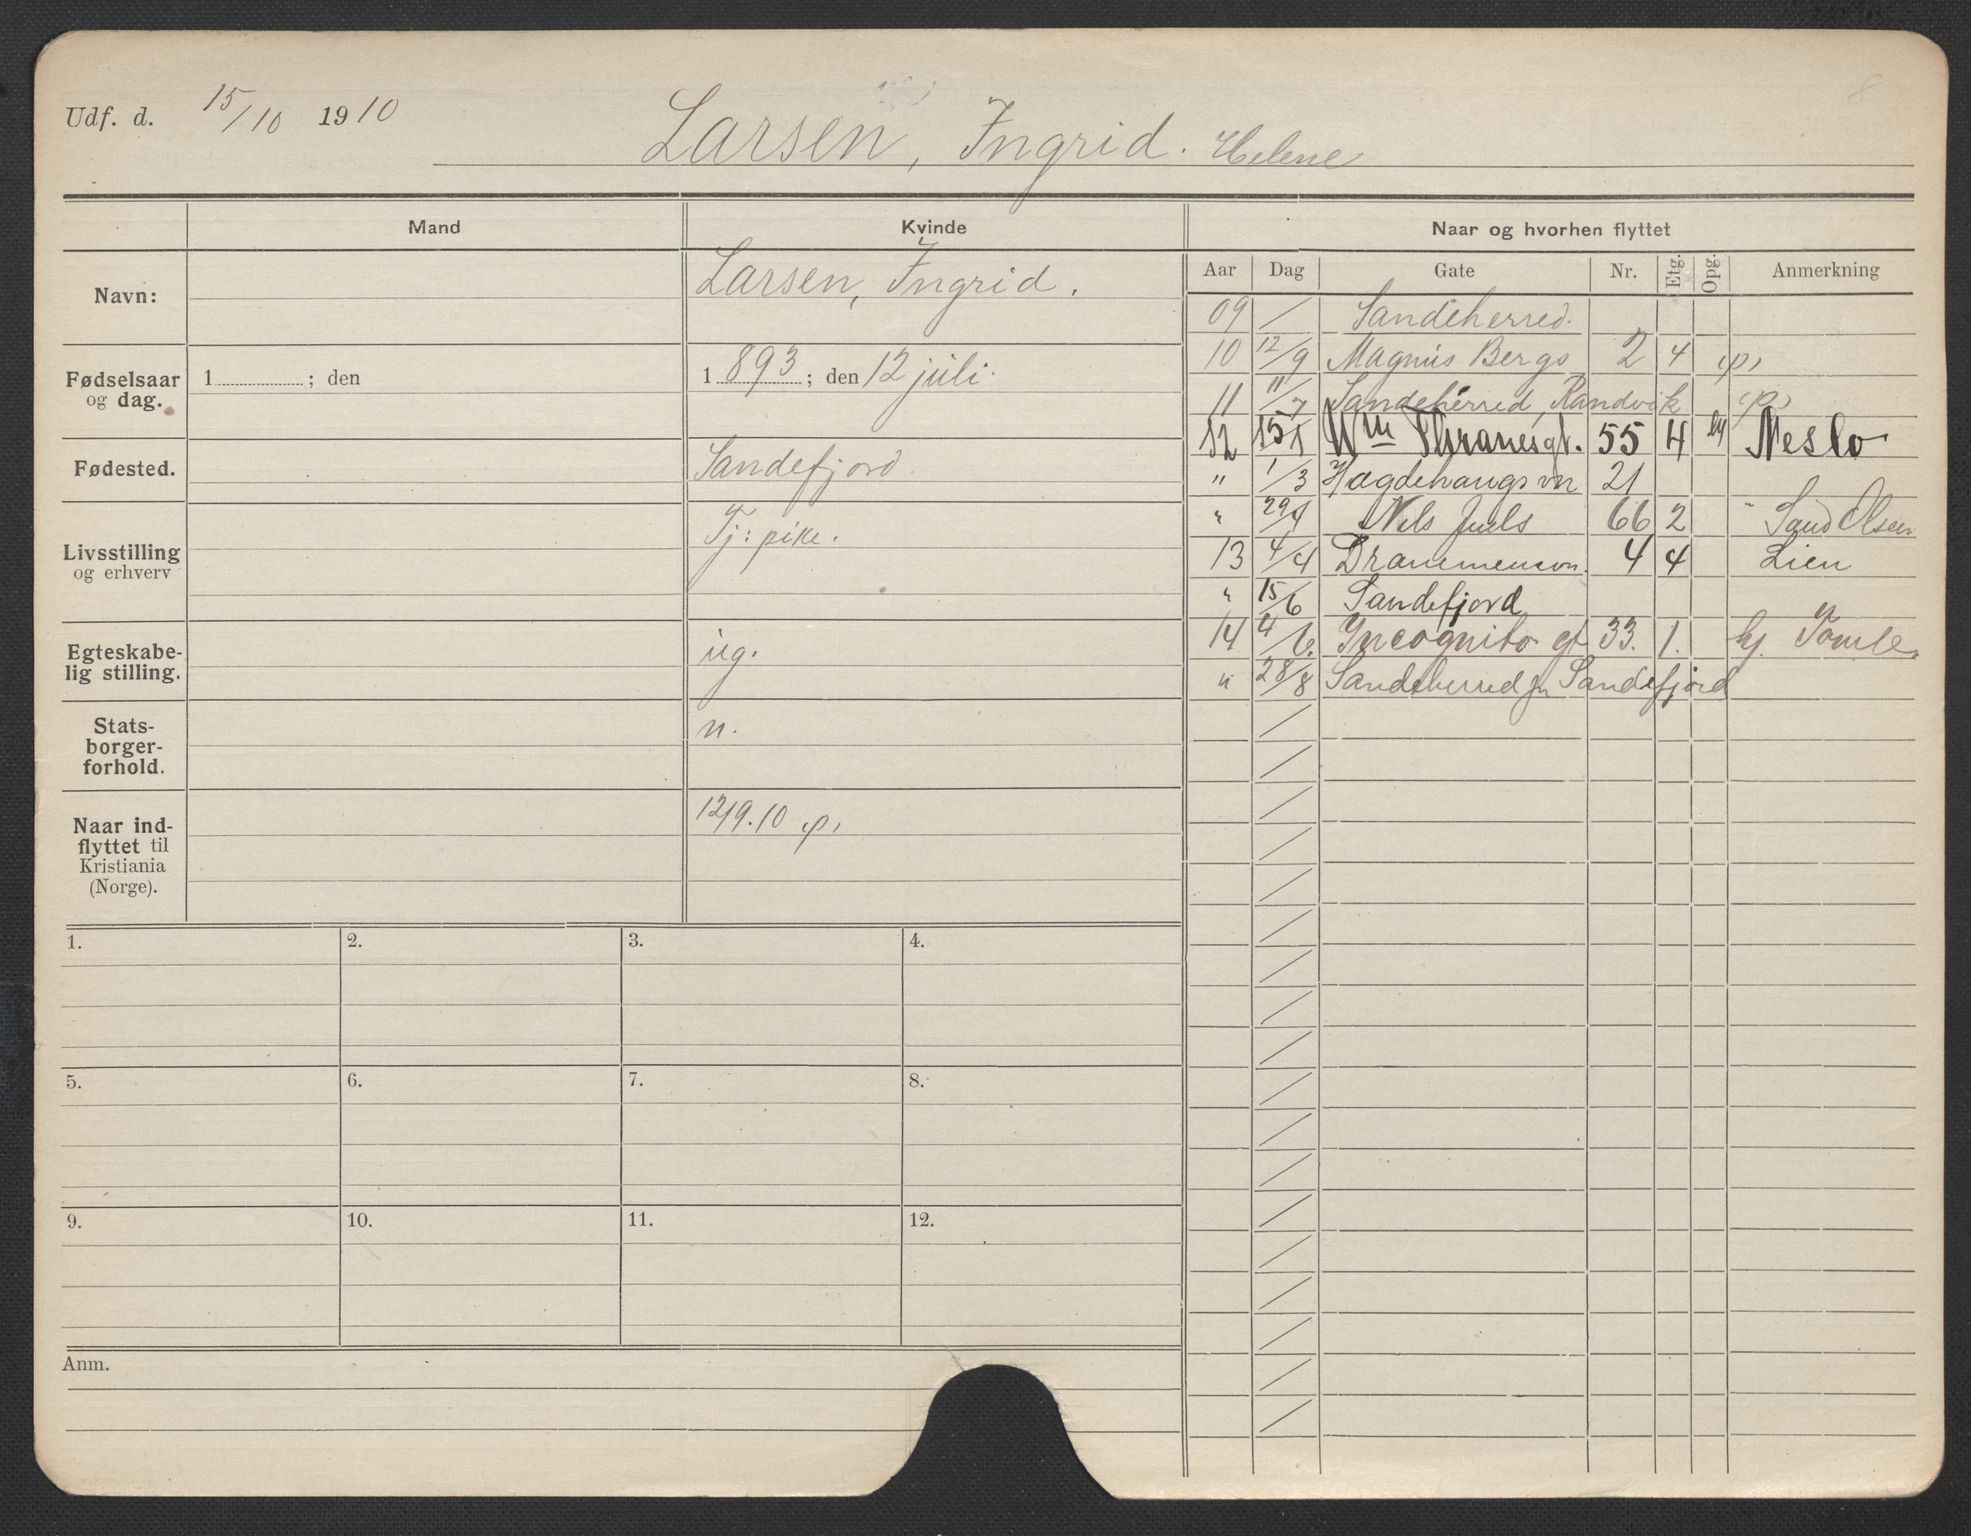 Udf. d. 15/10 1910
Larsen, Ingrid. Helene
Mand
Kvinde
Naar og hvorhen flyttet
Navn:
Larsen, Ingrid.
Fødselsaar og dag.
1 ; den
1893; den 12 juli.
Fødested.
Sandefjord.
Livsstilling og erhverv
Tj: pike.
Egteskabe-
lig stilling.
ug.
Stats-
borger-
forhold.
n.
Naar ind-
flyttet til
Kristiania
(Norge).
12/9.10 p,
Aar Dag Gate Nr. Etg. Opg. Anmerkning
09 / Sandeherred.
10 12/9 Magnus Bergs 2 4 p,
11 11/7 Sandeherred, Randvik p,
12 15/1 Wm Thranesgt. 55 4 Neslo
" 1/3 Hægdehaugsvn 21
" 29/4 Nils Juels 66 2 Sand Olsen
13 4/4 Drammensvn. 4 4 Lien
" 15/6 Sandefjord
14 4/6. Incognito gt 33. 1. hj. Tomle.
" 28/8 Sandeherred pr Sandefjord
1. 2. 3. 4.
5. 6. 7. 8.
9. 10. 11. 12.
Anm.